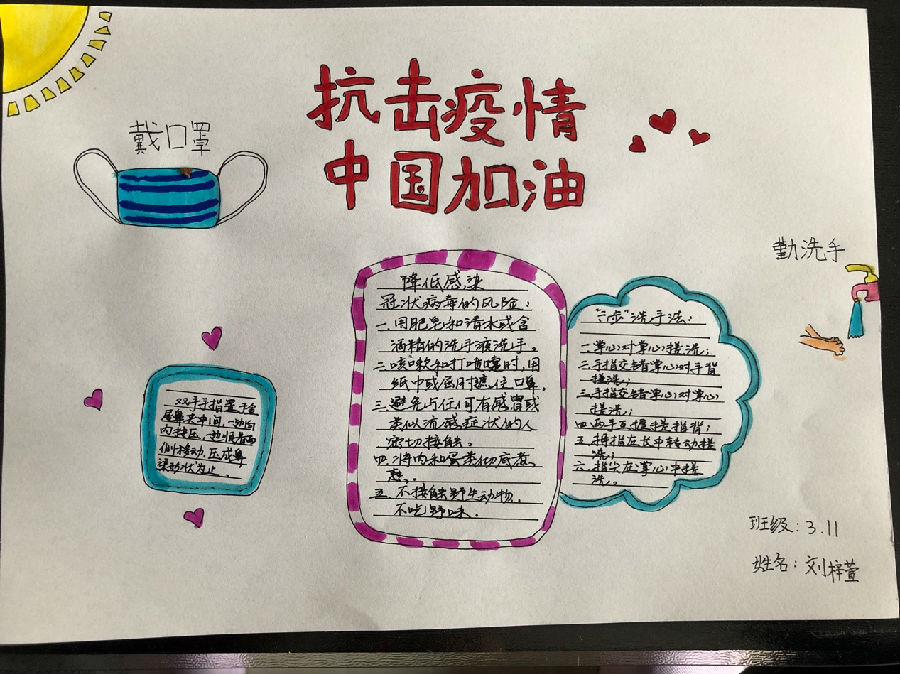 抗击疫情
中国加油
戴口罩
勤洗手
降低感染
冠状病毒的风险:
一.用肥皂和清水或含
酒精的洗手液洗手。
二.咳嗽和打喷嚏时,用
纸巾或屈肘遮住口鼻。
三.避免与任何有感冒或
类似流感症状的人
密切接触。
四.将肉和蛋类彻底煮
熟。
五.不接触野生动物,
不吃野味。
洗手法:
一.掌心对掌心搓洗;
二.手指交错掌心对手背
搓洗;
三.手指交错掌心对掌心
搓洗;
四.两手互握搓指背;
五.拇指在掌中转动搓
洗;
六.指尖在掌心中搓
洗。
双手手指置于金
属鼻夹中间,一边向
内按压,一边顺着两
侧移动,压成鼻
梁形状为止。
班级:3.11
姓名:刘梓萱